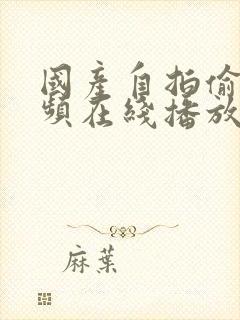 國產自拍偷
頻在綫播放
麻葉